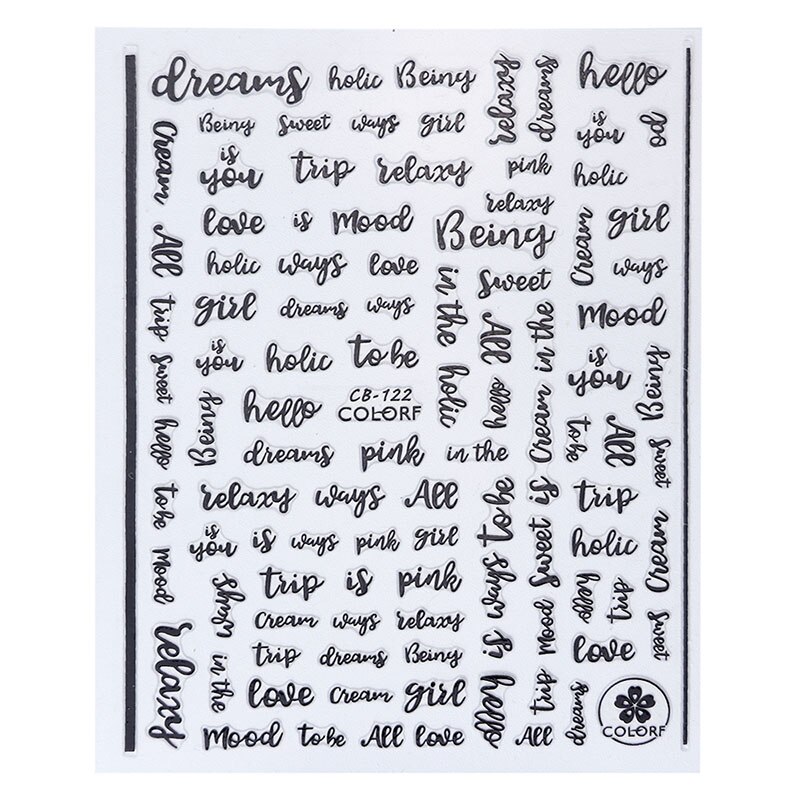 dreams holic Being
relaxy
dreams
hello
Being sweet ways girl
is
you
do
Cream
is
you
trip relaxy pink
holic
relaxy
love is Mood
Being
Cream
girl
All
holic ways love
in the
sweet
ways
trip
girl dreams ways
All
in the
Mood
sweet
is
you
holic to be
holic
hello
Cream
is
you
Being
hello
Being
hello
CB-122
COLORF
to be
All
sweet
dreams pink in the
to be
relaxy ways All
to be
is
trip
Mood
is
you
is ways pink girl
ways
sweet
holic
Cream
trip is pink
hello
trip
in the
Cream ways relaxy
is
Mood
sweet
relaxy
trip dreams Being
love
love Cream girl
hello
trip
dreams
COLORF
Mood to be All love
All